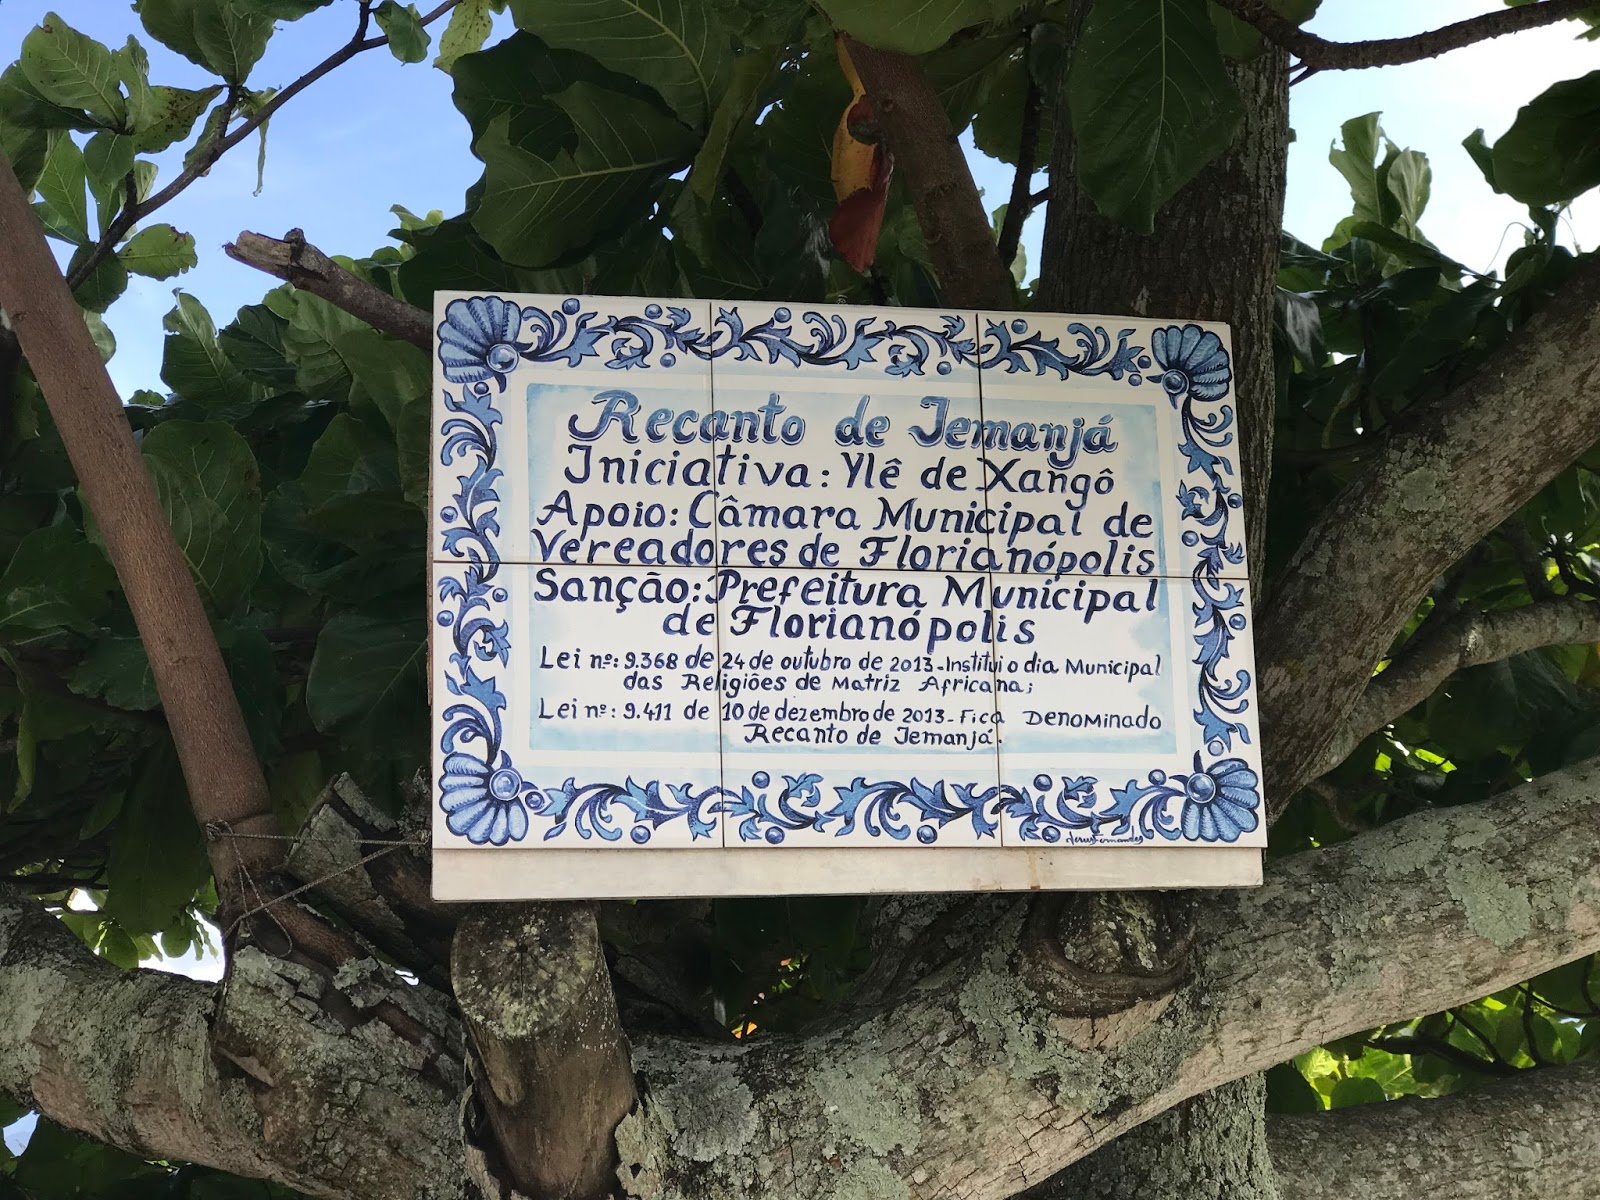 Recanto de Iemanjá
Iniciativa: Ylê de Xangô
Apoio: Câmara Municipal de
Vereadores de Florianópolis
Sanção: Prefeitura Municipal
de Florianópolis
Lei nº: 9.368 de 24 de outubro de 2013-Institui o dia Municipal
das Religiões de Matriz Africana;
Lei nº: 9.411 de 10 de dezembro de 2013-Fica Denominado
Recanto de Iemanjá.